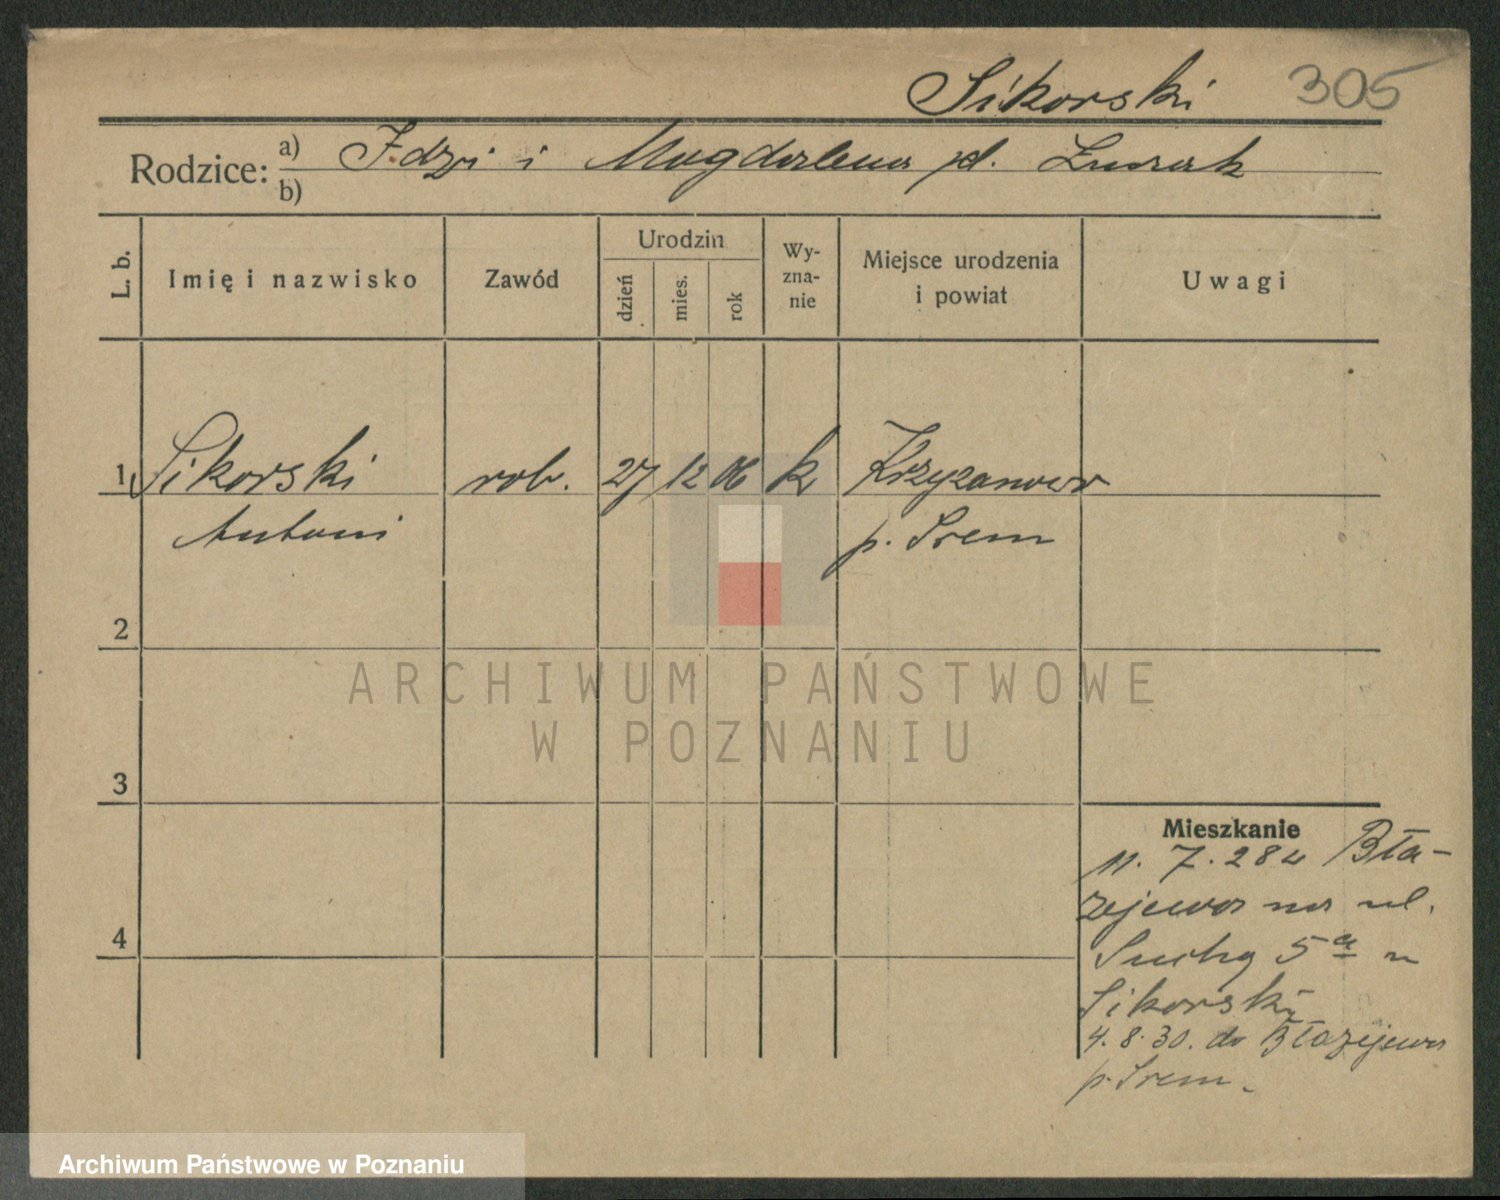 Sikorski 305
Rodzice: a) Idzi i Magdalena
b)
L. b. Imię i nazwisko Zawód Urodzin dzień mies. rok Wy-zna-nie Miejsce urodzenia i powiat Uwagi
1 Sikorski rob. 27 12 06 k Krzyżanowo
Antoni p. Śrem
2
3
4
Mieszkanie
11. 7. 28 z Bła-
żejewa na ul.
Suchą 5a u
Sikorski
4. 8. 30. do Błażejewa
p. Śrem.
ARCHIWUM PAŃSTWOWE
W POZNANIU
Archiwum Państwowe w Poznaniu